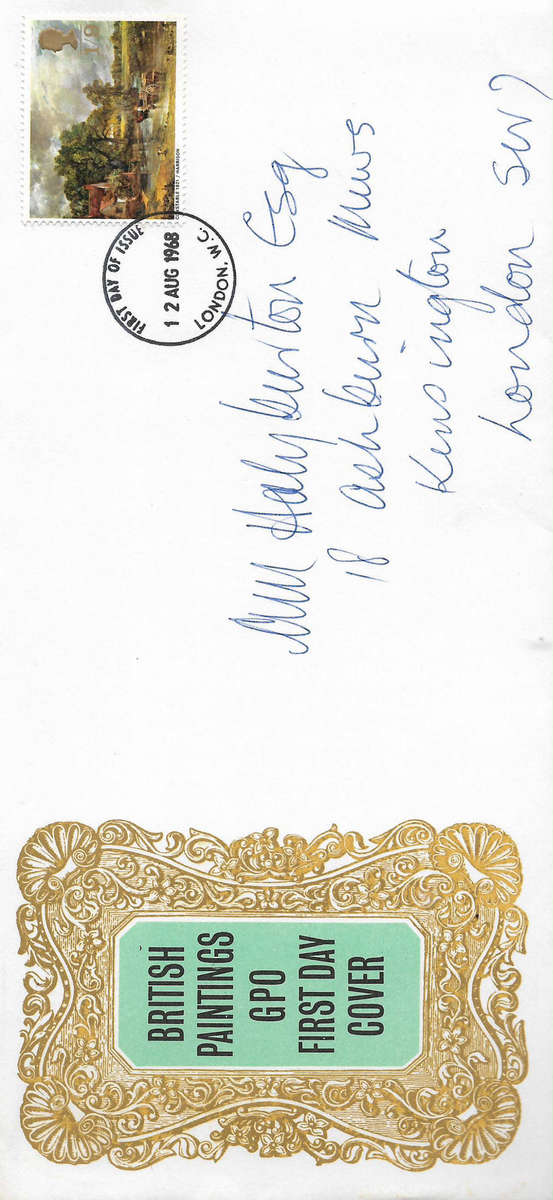 BRITISH
PAINTINGS
GPO
FIRST DAY
COVER
1/9
CONSTABLE 1821 / HARRISON
FIRST DAY OF ISSUE
12 AUG 1968
LONDON. W.C.
Halyburton Esq
18 Ashburn Mews
Kensington
London SW7